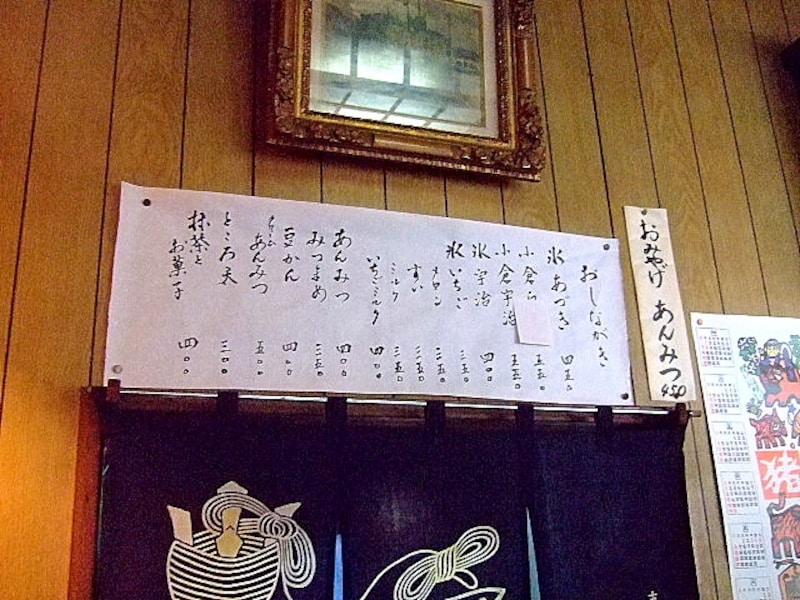 おしながき
氷 あづき 四五〇
小倉 五五〇
小倉宇治 五五〇
氷宇治 四〇〇
氷 いちご 三五〇
メロン 三五〇
すい 三五〇
ミルク 三五〇
いちごミルク 四〇〇
あんみつ 四〇〇
みつまめ 三五〇
豆かん 四〇〇
クリームあんみつ 五〇〇
ところ天 三〇〇
抹茶と
お菓子 四〇〇
おみやげ あんみつ 450
猪